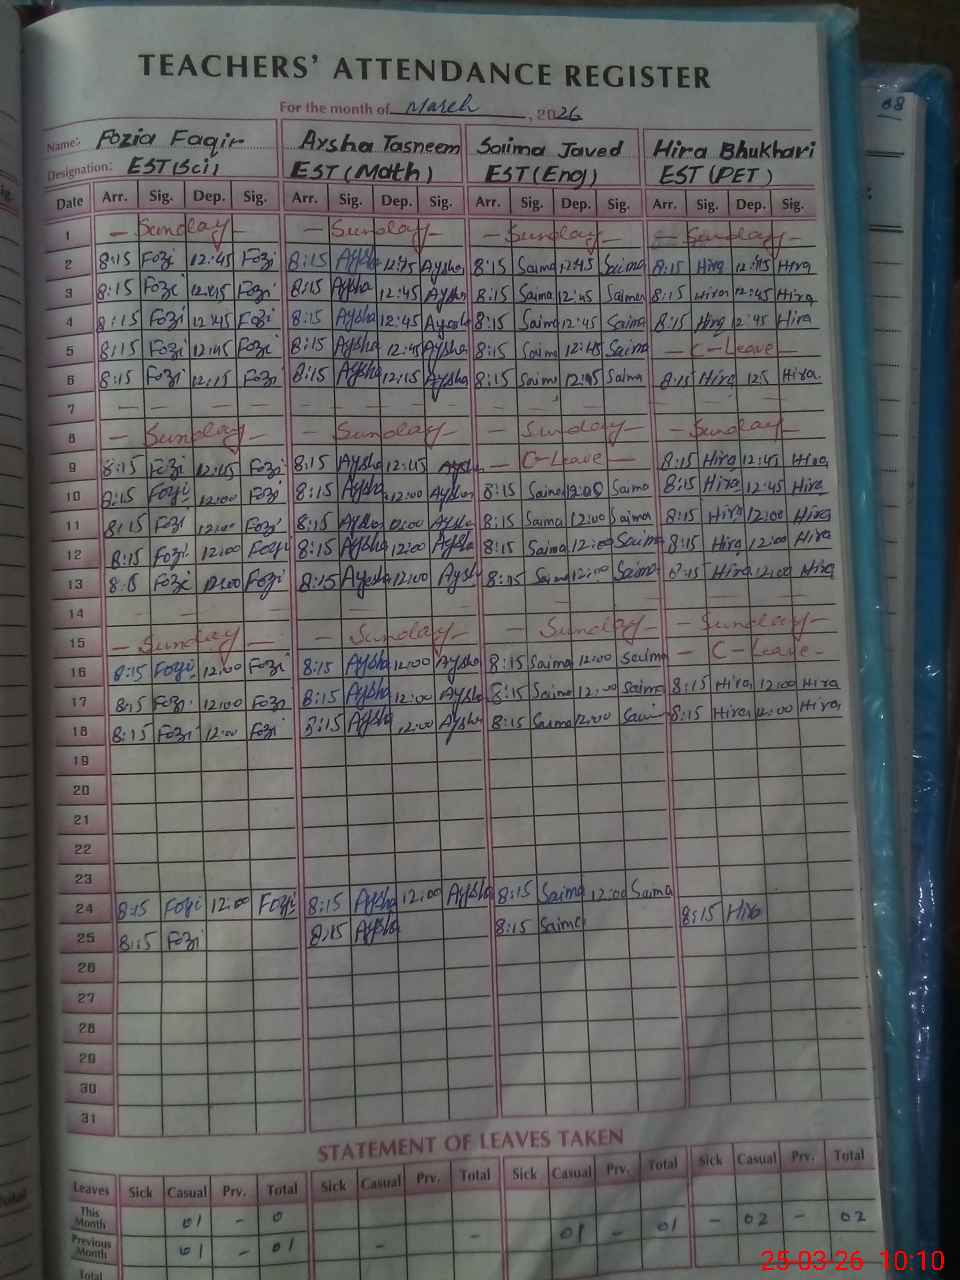 TEACHERS' ATTENDANCE REGISTER
For the month of March, 2026
Name: Fozia Faqir Aysha Tasneem Saima Javed Hira Bhukhari
Designation: EST(Sci) EST(Math) EST(Eng) EST(PET)
Date Arr. Sig. Dep. Sig. Arr. Sig. Dep. Sig. Arr. Sig. Dep. Sig. Arr. Sig. Dep. Sig.
1 - Sunday - - Sunday - - Sunday - - Sunday -
2 8:15 Fozi 12:45 Fozi 8:15 Aysha 12:45 Aysha 8:15 Saima 12:45 Saima 8:15 Hira 12:45 Hira
3 8:15 Fozi 12:45 Fozi 8:15 Aysha 12:45 Aysha 8:15 Saima 12:45 Saima 8:15 Hira 12:45 Hira
4 8:15 Fozi 12:45 Fozi 8:15 Aysha 12:45 Aysha 8:15 Saima 12:45 Saima 8:15 Hira 12:45 Hira
5 8:15 Fozi 12:45 Fozi 8:15 Aysha 12:45 Aysha 8:15 Saima 12:45 Saima - C-Leave -
6 8:15 Fozi 12:15 Fozi 8:15 Aysha 12:15 Aysha 8:15 Saima Saima 8:15 Hira Hira
7 - - - - - - - -
8 - Sunday - - Sunday - - Sunday - - Sunday -
9 8:15 Fozi 12:45 Fozi 8:15 Aysha 12:45 Aysha - C-Leave - 8:15 Hira 12:45 Hira
10 8:15 Fozi 12:00 Fozi 8:15 Aysha 12:00 Aysha 8:15 Saima 12:00 Saima 8:15 Hira 12:45 Hira
11 8:15 Fozi 12:00 Fozi 8:15 Aysha 12:00 Aysha 8:15 Saima 12:00 Saima 8:15 Hira 12:00 Hira
12 8:15 Fozi 12:00 Fozi 8:15 Aysha 12:00 Aysha 8:15 Saima 12:00 Saima 8:15 Hira 12:00 Hira
13 Fozi 12:00 Fozi 8:15 Aysha 12:00 Aysha 8:15 Saima 12:00 Saima 8:15 Hira 12:00 Hira
14 - - - - - - - -
15 - Sunday - - Sunday - Sunday - - Sunday -
16 8:15 Fozi 12:00 Fozi 8:15 Aysha 12:00 Aysha 8:15 Saima 12:00 Saima - C-Leave -
17 8:15 Fozi 12:00 Fozi 8:15 Aysha 12:00 Aysha 8:15 Saima 12:00 Saima 8:15 Hira 12:00 Hira
18 8:15 Fozi 12:00 Fozi 8:15 Aysha 12:00 Aysha 8:15 Saima 12:00 Saima 8:15 Hira 12:00 Hira
19
20
21
22
23
24 8:15 Fozi 12:00 Fozi 8:15 Aysha 12:00 Aysha 8:15 Saima 12:00 Saima
25 8:15 Fozi 8:15 Aysha 8:15 Saima 8:15 Hira
26
27
28
29
30
31
STATEMENT OF LEAVES TAKEN
Leaves Sick Casual Prv. Total Sick Casual Prv. Total Sick Casual Prv. Total Sick Casual Prv. Total
This Month 01 - 0 01 - 01 - 02 - 02
Previous Month 01 - 01 - -
Total
25-03-26 10:10